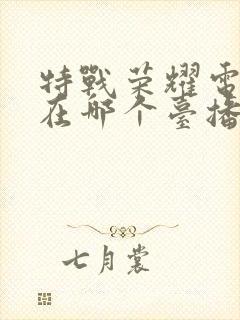 特戰荣耀電
在哪个臺播
七月裳